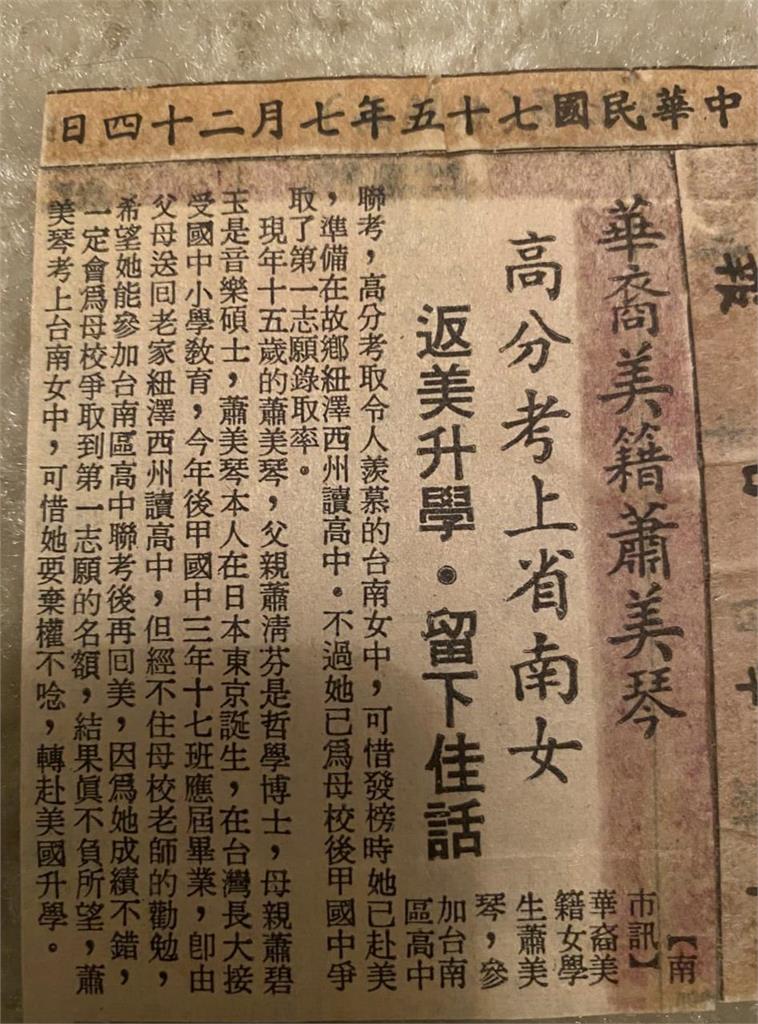 中華民國七十五年七月二十四日
華裔美籍蕭美琴
高分考上省南女
返美升學・留下佳話
【南
市訊】
華裔美
籍女學
生蕭美
琴，參
加台南
區高中
聯考，高分考取令人羨慕的台南女中，可惜發榜時她已赴美
，準備在故鄉紐澤西州讀高中。不過她已爲母校後甲國中爭
取了第一志願錄取率。
現年十五歲的蕭美琴，父親蕭淸芬是哲學博士，母親蕭碧
玉是音樂碩士，蕭美琴本人在日本東京誕生，在台灣長大接
受國中小學敎育，今年後甲國中三年十七班應屆畢業，卽由
父母送回老家紐澤西州讀高中，但經不住母校老師的勸勉，
希望她能參加台南區高中聯考後再回美，因爲她成績不錯，
一定會爲母校爭取到第一志願的名額，結果眞不負所望，蕭
美琴考上台南女中，可惜她要棄權不唸，轉赴美國升學。